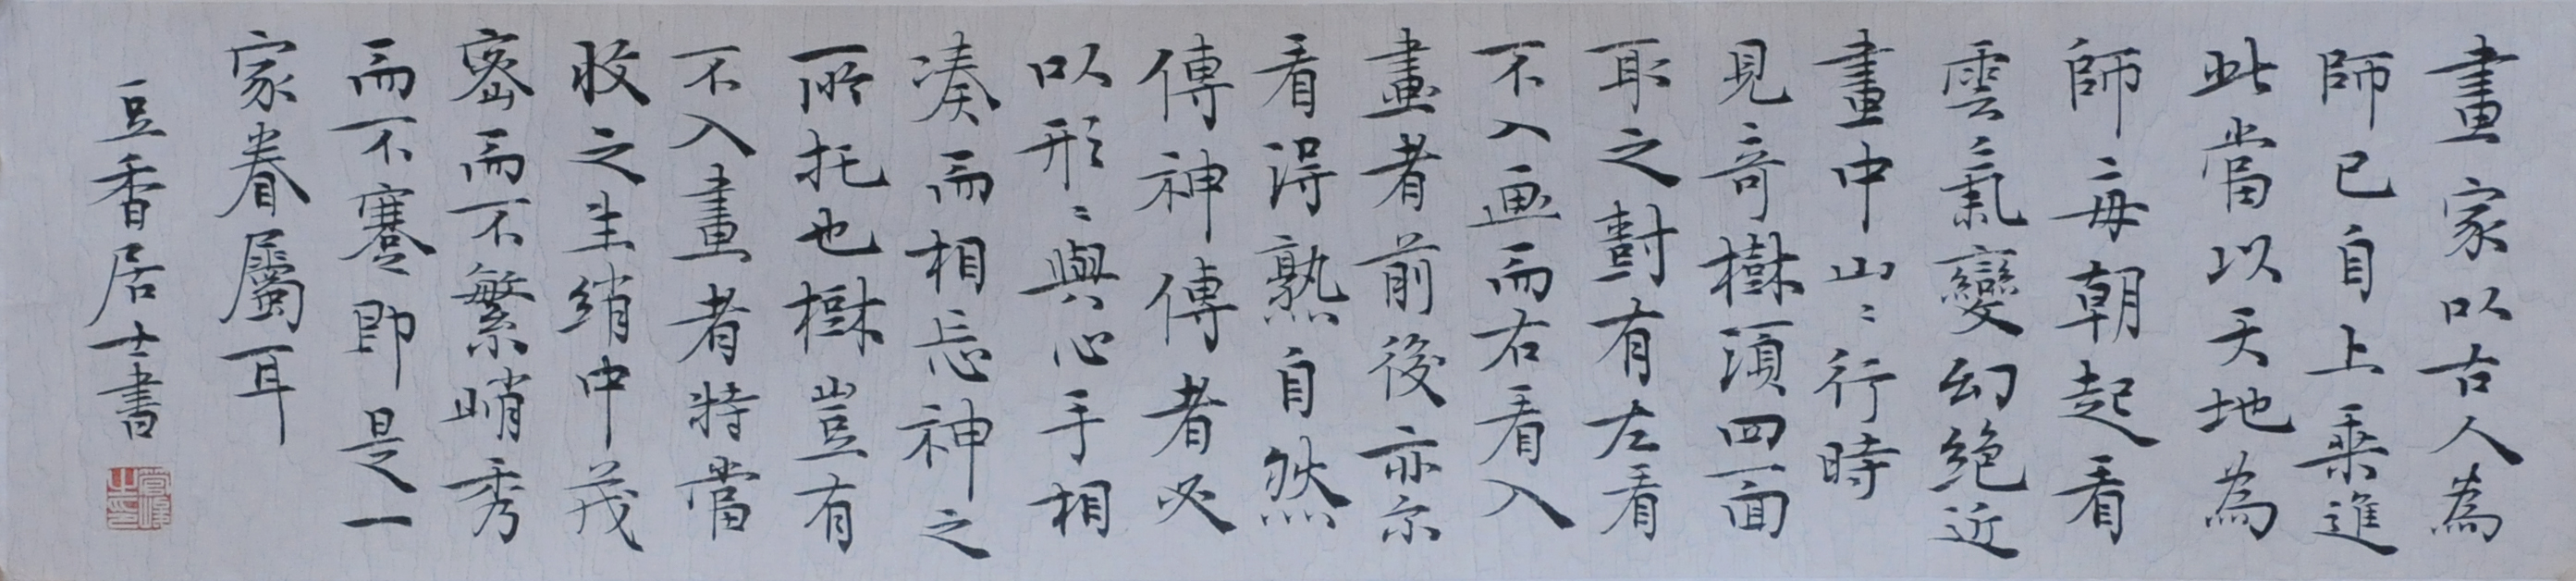 畫家以古人為
師已自上乘進
此當以天地為
師每朝起看
雲氣變幻絕近
畫中山山行時
見奇樹須四面
取之樹有左看
不入画而右看入
畫者前後亦尒
看得熟自然
傳神傳者必
以形形與心手相
湊而相忘神之
所托也樹豈有
不入畫者特當
收之生綃中茂
密而不繁峭秀
而不蹇即是一
家眷屬耳
豆香居士書